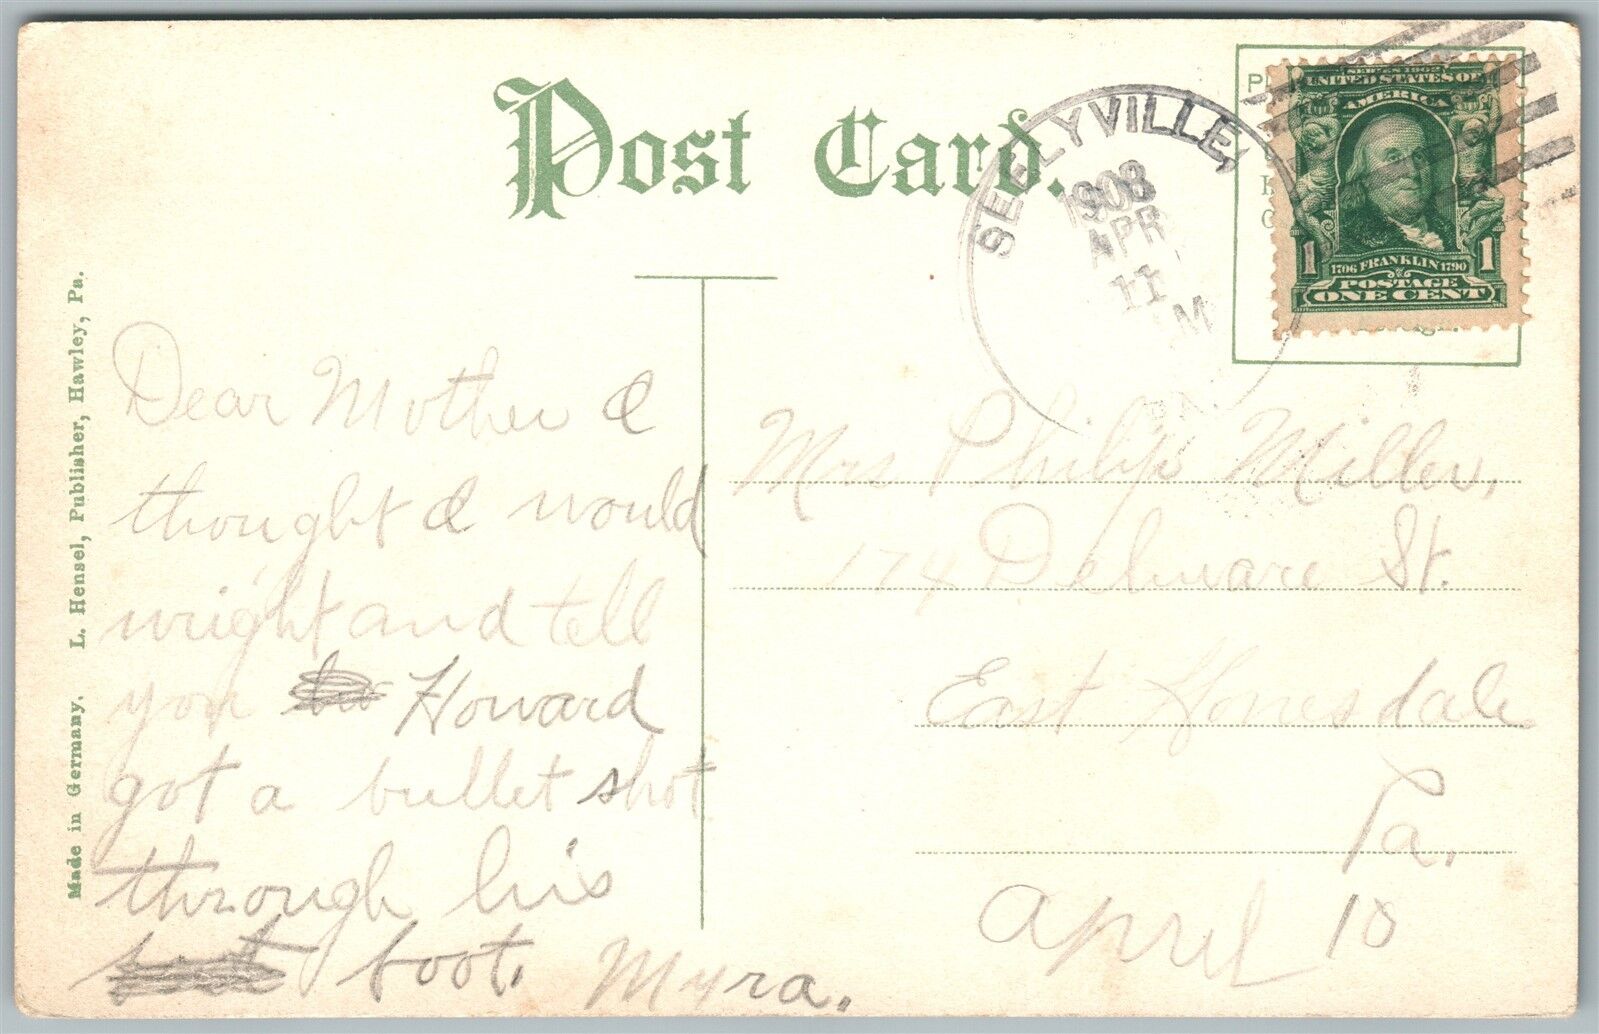 Post Card.
SEELYVILLE,
1908
APR
11
M
PA.
SERIES 1902
UNITED STATES OF
AMERICA
1 1
1706 FRANKLIN 1790
POSTAGE
ONE CENT
Made in Germany. L. Hensel, Publisher, Hawley, Pa.
Dear Mother I
thought I would
wright and tell
you Howard
got a bullet shot
through his
foot. Myra.
Mrs Philip Miller,
174 Delware St.
East Honesdale
Pa.
April 10